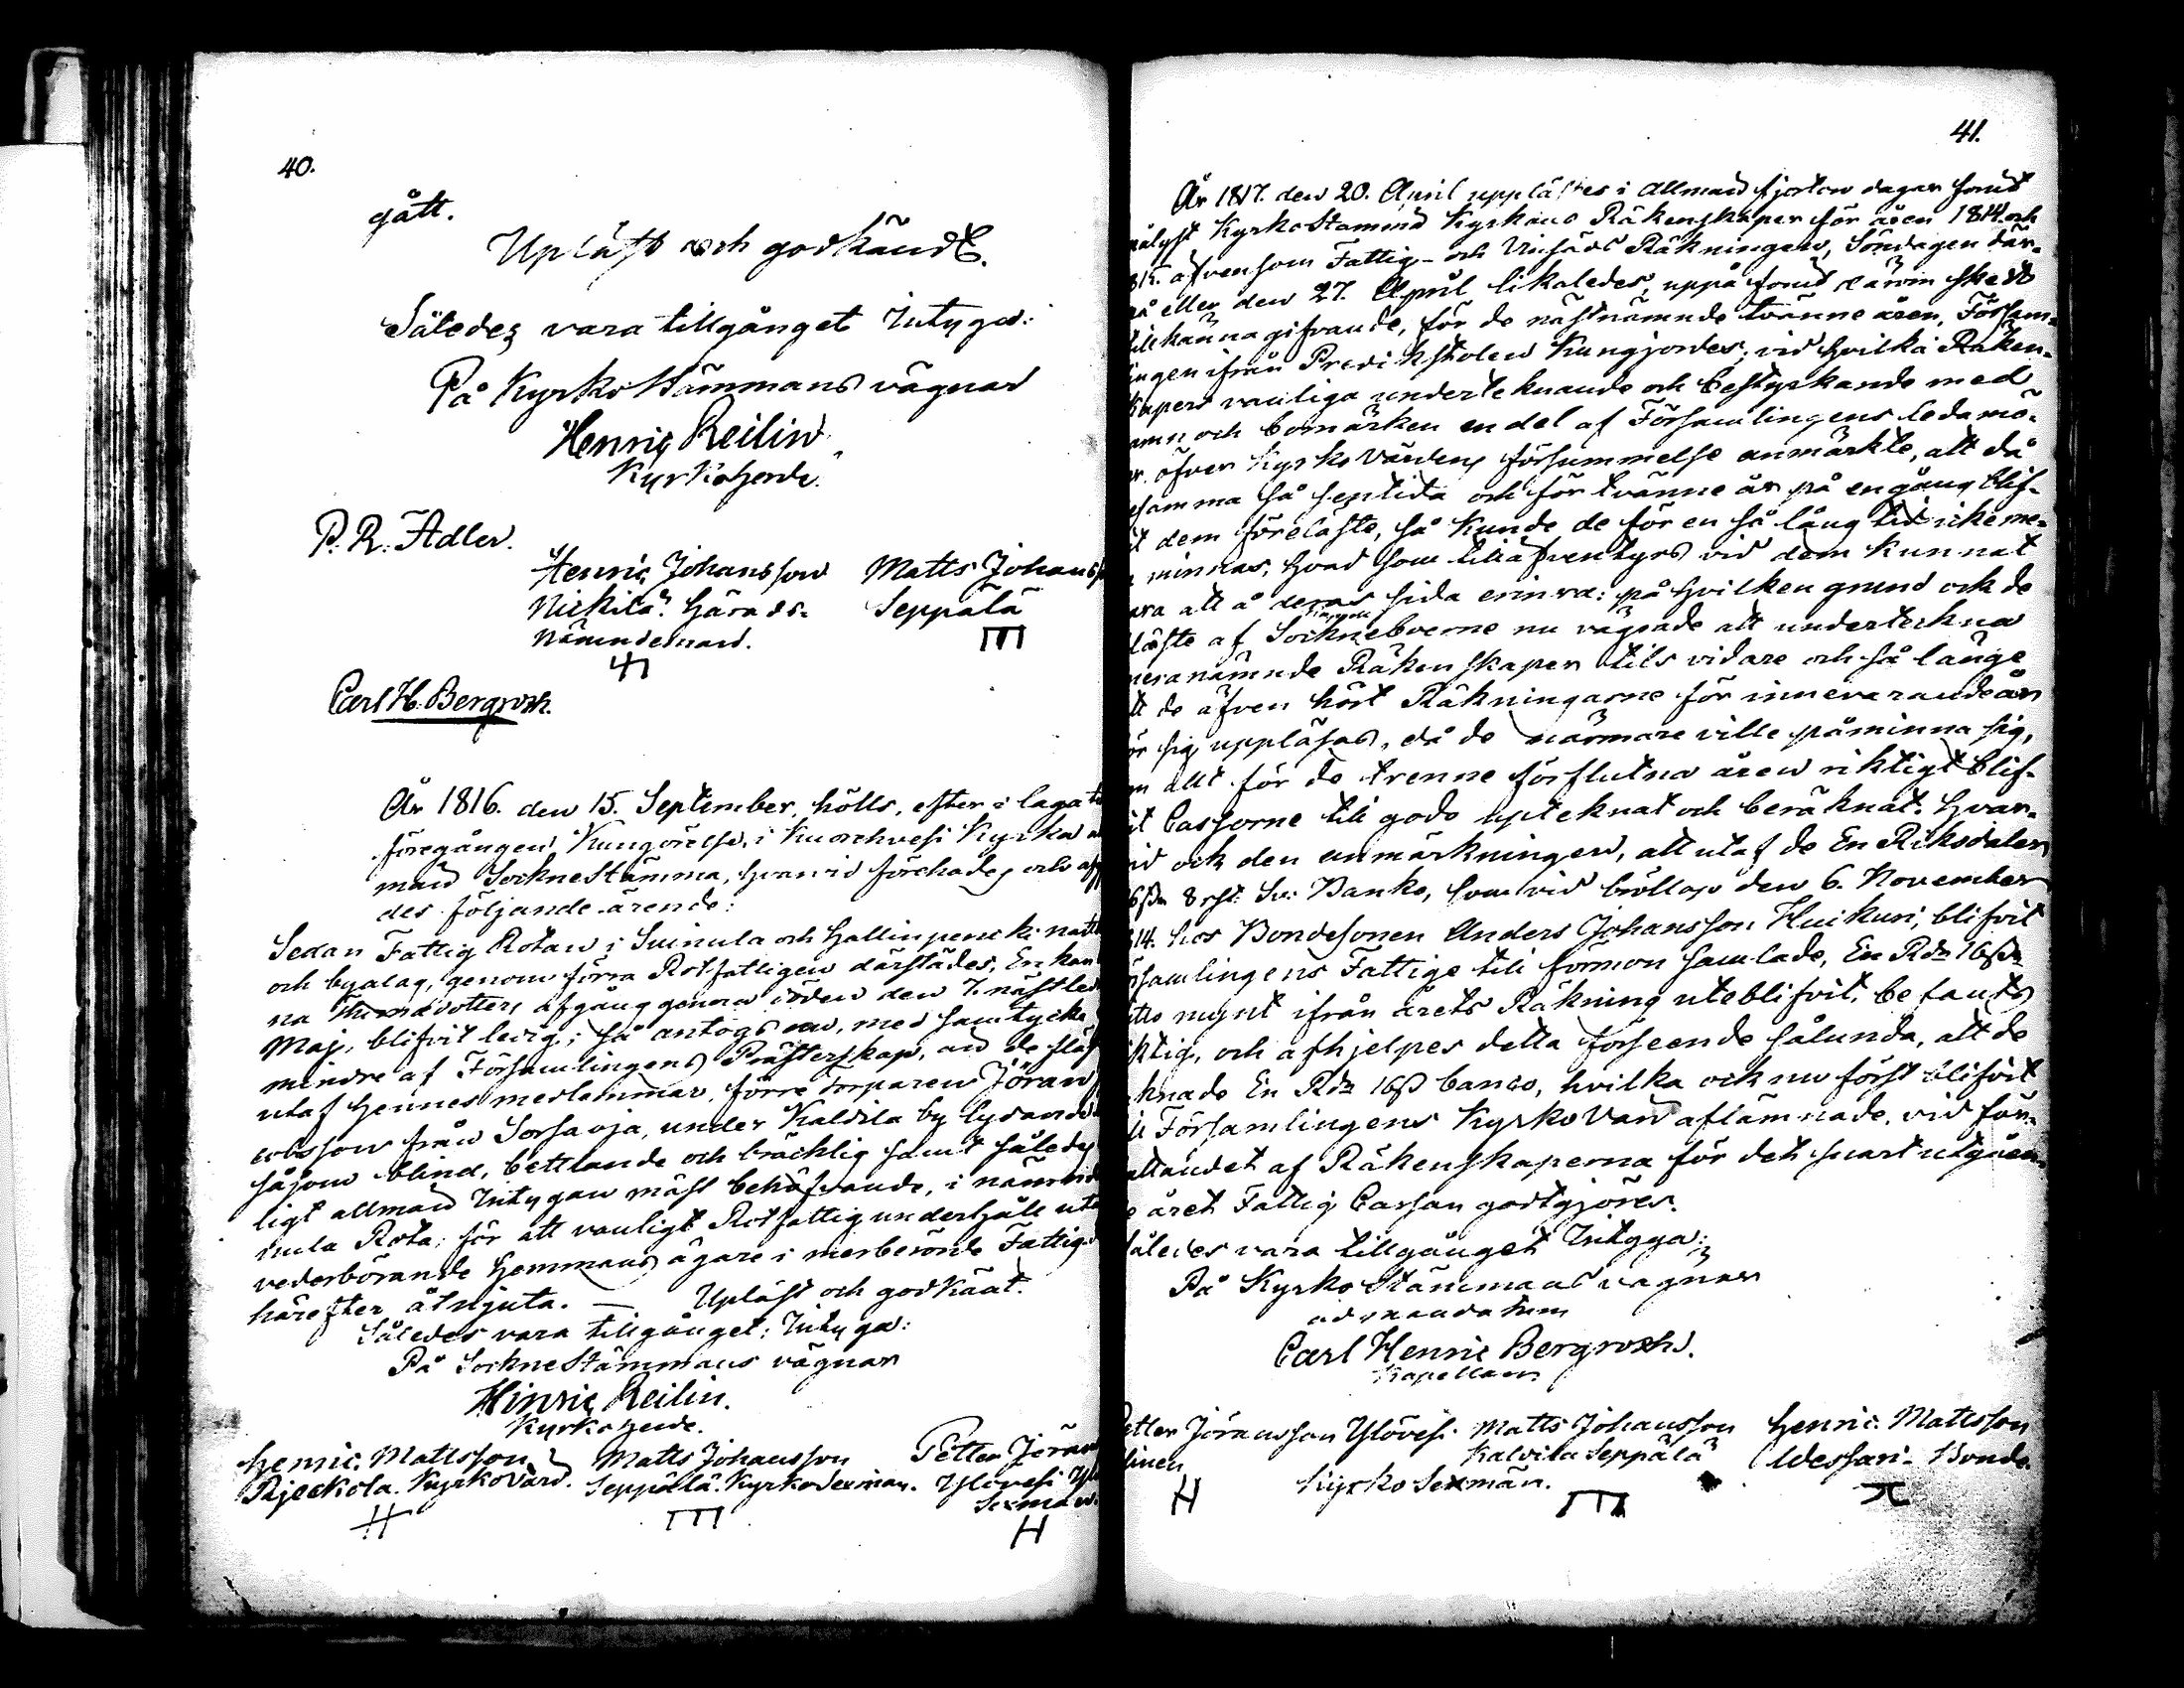 40.
gått.
Upläst och godkändt.
Således vara tillgånget Intyga:
På KyrkoStämmans vägnar
Henric Reilin
Kyrkoherde.
P. R. Adler.
Henric Johansson Matts Johans
Nickilä Härads- Seppälä
Nämndeman.
Carl H. Bergroth.
År 1816. den 15. September, hölls, efter i laga
föregången Kungörelse, i Kuorehvesi Kyrka
män SockneStämma, hvarvid förehades och
des följande ärende:
Sedan Fattig Rotan i Suinula och Hallinpenicki
och byalag, genom förra Rotfattigen därstädes, Enkan
na dotters afgång genom döden den 7. nästled
Maj, blifvit ledig; så antogs nu, med samtycke
mindre af Församlingens Prästerskap, än de
utaf hennes medlemmar, förre Torparen Jöran
cobsson från Sorsavja, under Kaldila by lydande
såsom blind, bettlande och bräcklig samt således
ligt allmän Intygan mäst behöfvande, i nämnde
nula Rota; för att vanligt Rotfattig underhåll
vederbörande Hemmans ägare i merberörde Fattig
härefter åtnjuta. — Upläst och godkänt.
Således vara tillgånget; Intyga:
På SockneStämmans vägnar
Hinric Reilin.
Kyrkoherde.
Henric Mattsson Matts Johansson Petter Jöran
Pjeckola. KyrkoVärd. Seppälä. KyrkoSexman. Ylövesi
Sexman.
H H
41.
År 1817. den 20. April uppläftes i allmän fjorton dagar förut
pålyst KyrkoStämma Kyrkans Räkenskaper för åren 1814 och
815. äfvensom Fattig- och Räkningen, Söndagen där-
på eller den 27. April likaledes, uppå förut därom skedt
tillkännagifvande, för de nästnämnde tvänne åren, Försam-
ingen ifrån Predikstolen Kungjordes; vid hvilka Räken-
skapers vanliga undertecknande och bestyrkande med
amn och bomärken en del af Församlingens ledamö-
er. öfver KyrkoVärdens försummelse anmärkte, att då
samma så sentida och för tvänne år på en gång blif-
it dem föreläste, så Kunde de för en så lång tid icke me-
minnas, hvad som till äfventyrs vid dem Kunnat
vara att å deras sida erinra: på hvilken grund ock de
läste af Sockneboerne nu vägrade att underteckna
meranämnde Räkenskaper tils vidare och så länge
tt de äfven hört Räkningarne för innevarande år
ör sig uppläsas, då de närmare ville påminna sig,
m allt för de trenne förflutna åren riktigt blif-
it Cassorne till godo upteknat och beräknat. Hvar-
vid ock den anmärkningen, att utaf de En Riksdaler
16 sk 8 rst. Sv: Banko, som vid bröllop den 6. November
814. hos Bondesonen Anders Johansson Huikuri, blifvit
samlingens Fattige till förmon samlade, En Rdr 16 sk
mynt ifrån årets Räkning uteblifvit, befants
iktig, och afhjelpes detta förseende sålunda, att de
knade En Rdr 16 sk banco, hvilka ock nu först blifvit
Församlingens KyrkoVärd aflämnade, vid för-
attandet af Räkenskaperna för det snart utgåen-
e året Fattig Cassan godtgjöres.
åledes vara tillgånget Intyga:
På KyrkoStämmans vägnar
ad mandatum
Carl Henric Bergroth.
Kapellan
etter Jöransson Ylövesi Matts Johansson Henric Mattsson
linen Kaldila Seppälä Uldessari Bonde.
Kyrko Sexmän.
H